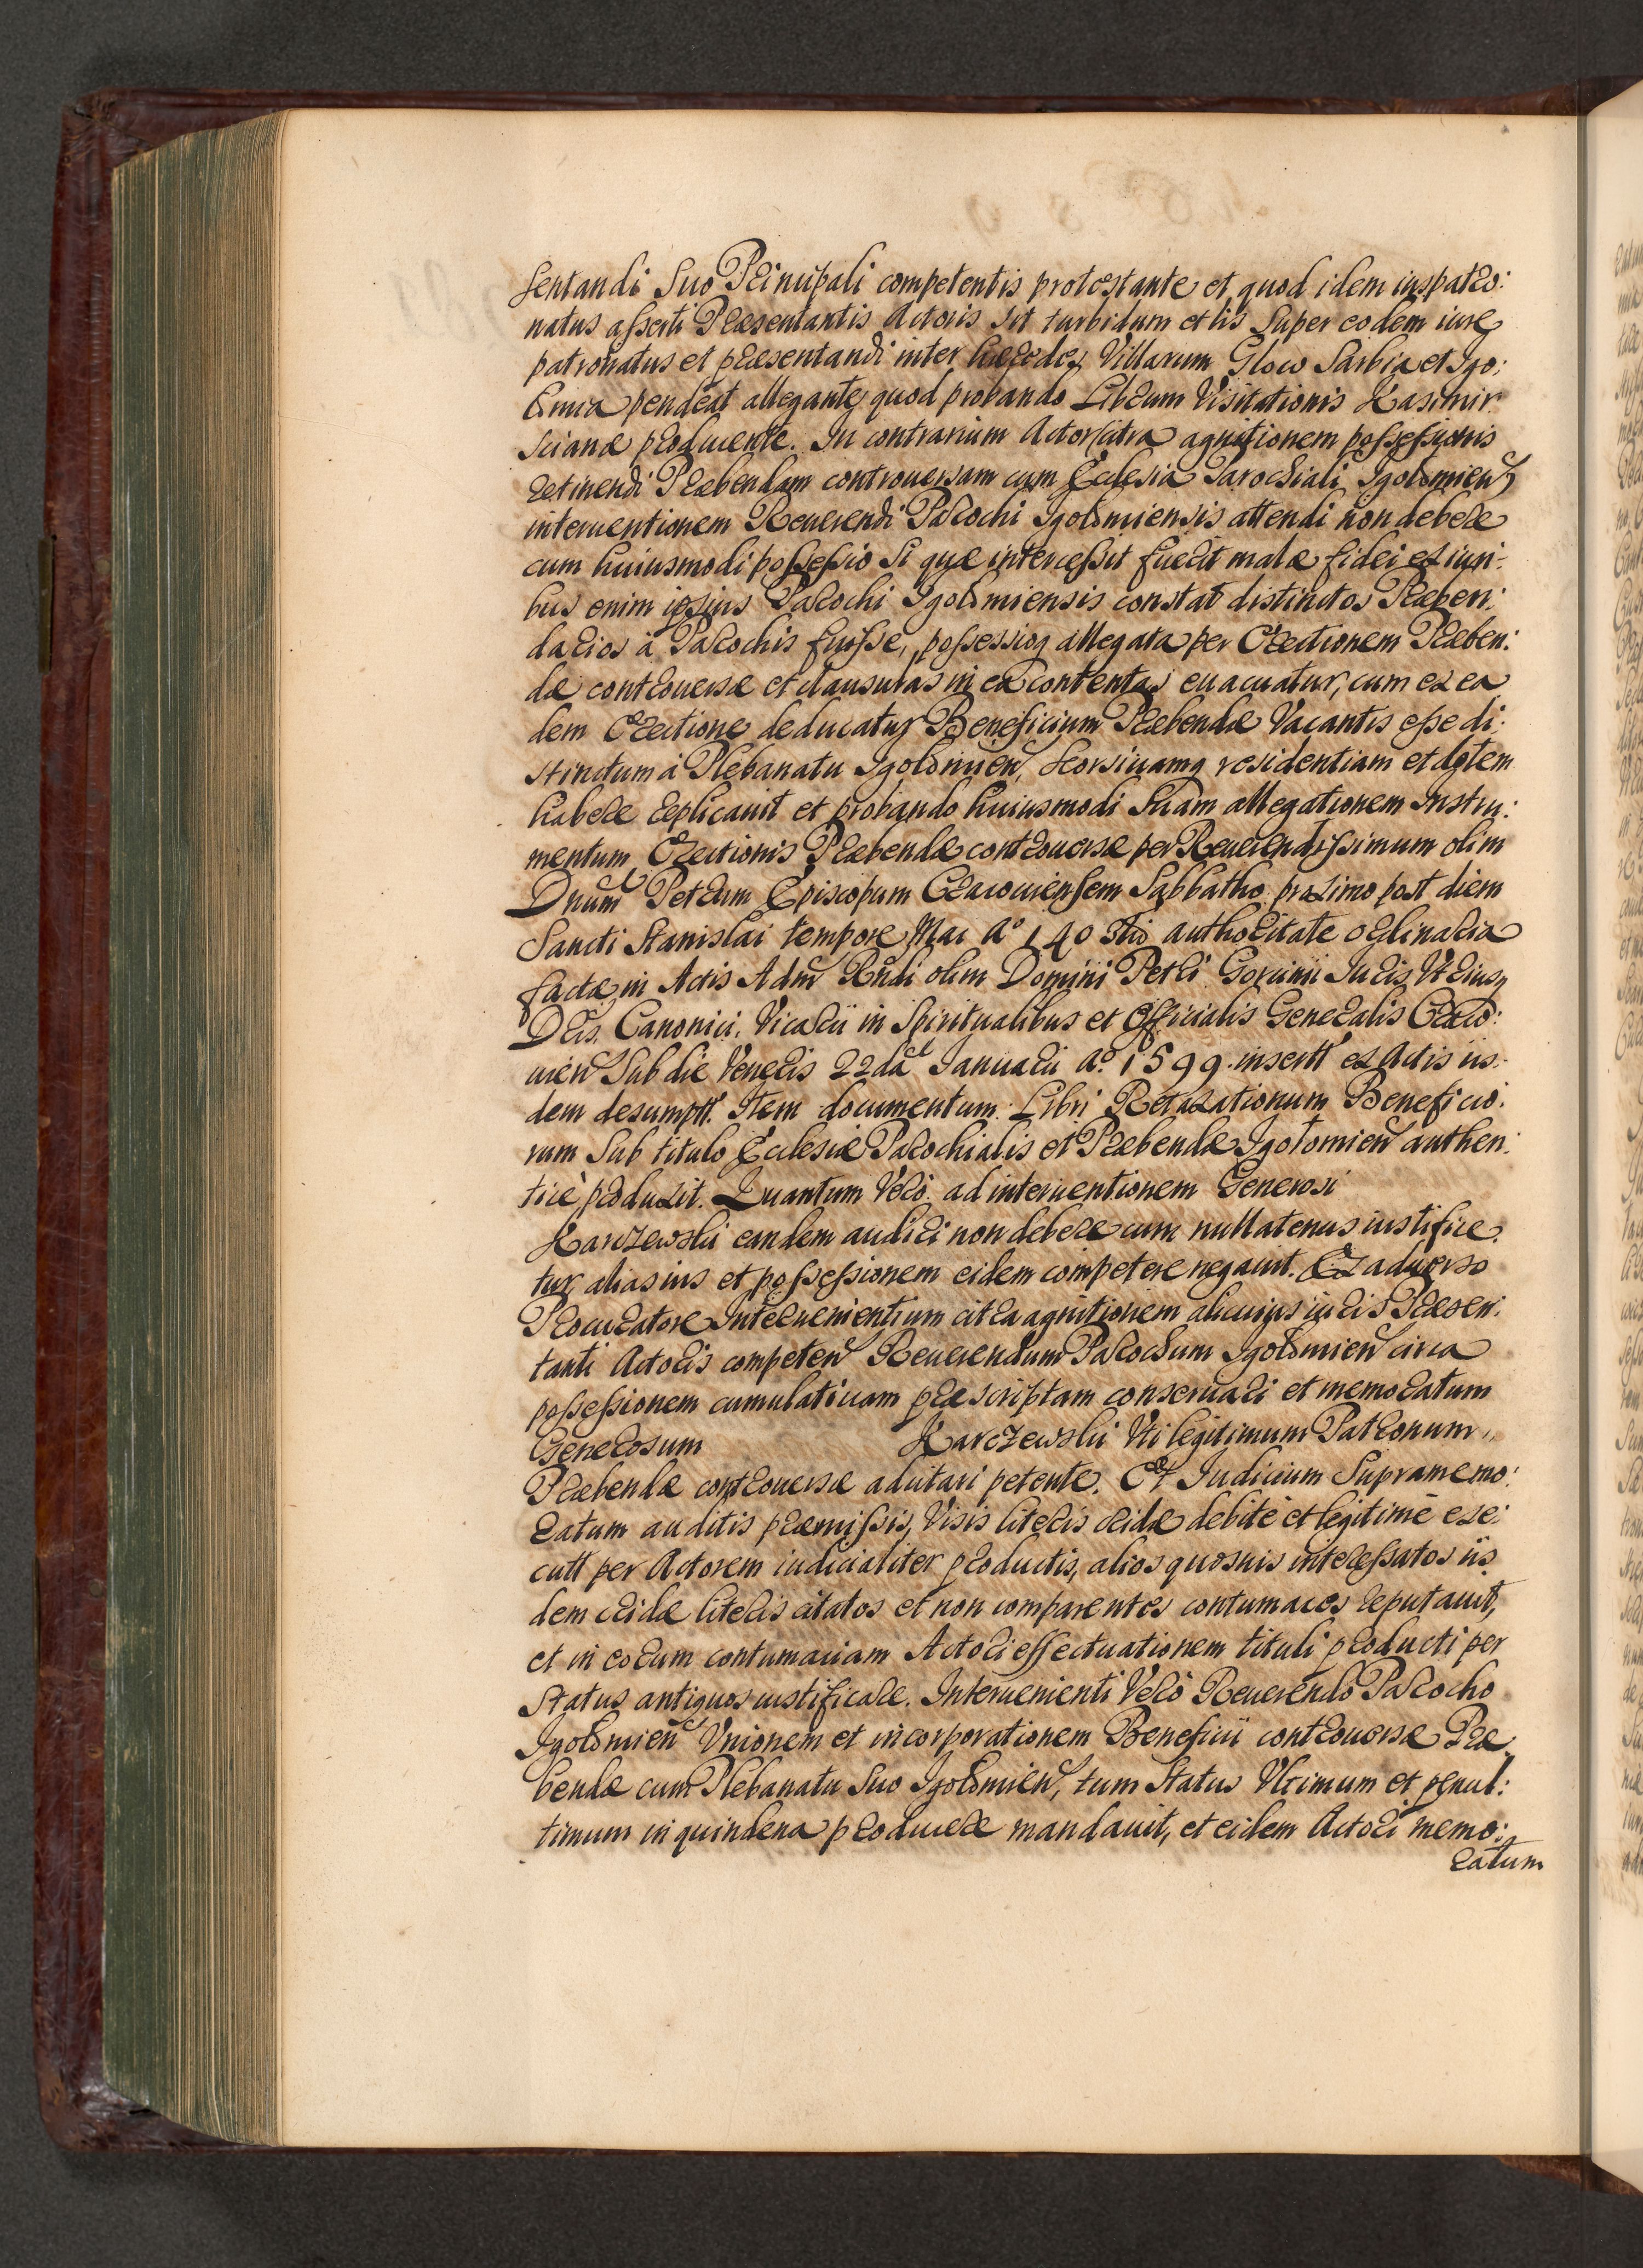 sentandi Suo Principali competentis protestante et quod idem iuspatro:
natus asserti Præsentantis Actoris sit turbidum et lis super eodem iure
patronatus et præsentandi inter hæredes Villarum Glow Sarbia et Igo:
lomia pendeat allegante, quod probando Librum Visitationis Kasimir
scianæ producente. In contrarium Actor citra agnitionem possessionis
retinendi Præbendam controuersam cum Ecclesia Parochiali Igolomien
interuentionem Reuerendi Parochi Igolomiensis attendi non debere
cum huiusmodi possessio si quæ intercessit fuerit malæ fidei ex iuri:
bus enim ipsius Parochi Igolomiensis constat distinctos Præben:
darios à Parochis fuisse, possessioq allegata per Erectionem Præben:
dæ controuersæ et clausulas in ea contentas euacuatur, cum ex ea
dem Erectione deducatur Beneficium Præbendæ Vacantis esse di:
stinctum à Plebanatu Igolomien, seorsiuamq residentiam et dotem
habere replicauit et probando huiusmodi suam allegationem Instru:
mentum Erectionis Præbendæ controuersæ per Reuerendissimum olim
Dnum Petrum Episcopum Cracouiensem Sabbatho proximo post diem
Sancti Stanislai tempore Maii Aº 140 authoritate ordinaria
factæ in Actis Adm Rndi olim Domini Petri Gorcinii Iuris Vtriusq
Dris, Canonici, Vicarii in Spiritualibus et Officialis Generalis Craco:
uien sub die Veneris 22da Ianuarii Aº 1599. insertt ex Actis iis:
dem desumptt. Item documentum Libri Retaxationum Beneficio:
rum sub titulo Ecclesiæ Parochialis et Præbendæ Igolomien authen:
ticè produxit. Quantum Verò ad interuentionem Generosi
Karczewski eandem audiri non debere cum nullatenus iustifice
tur, alias ius et possessionem eidem competere negauit. Ex aduerso
Procuratore Interuenientium citra agnitionem alicuius iuris Præsen:
tanti Actoris competen Reuerendum Parochum Igolomien circa
possessionem cumulatiuam præscriptam conseruari et memoratum
Generosum Karczewski Vti legitimum Patronum
Præbendæ controuersæ adcitari petente. Et Iudicium Supramemo:
ratum auditis præmissis, Visis literis cridæ debitè et legitimè exe:
cutt per Actorem iudicialiter productis, alios quosuis interessatos iis
dem cridæ literis citatos et non comparentes contumaces reputauit,
et in eorum contumaciam Actori effectuationem tituli producti per
Status antiquos iustificare. Interuenienti Verò Reuerendo Parocho
Igolomien Vnionem et incorporationem Beneficii controuersæ Præ
bendæ cum Plebanatu suo Igolomien, tum Status Vltimum et penul:
timum in quindena producere mandauit, et eidem Actori memo:
ratum